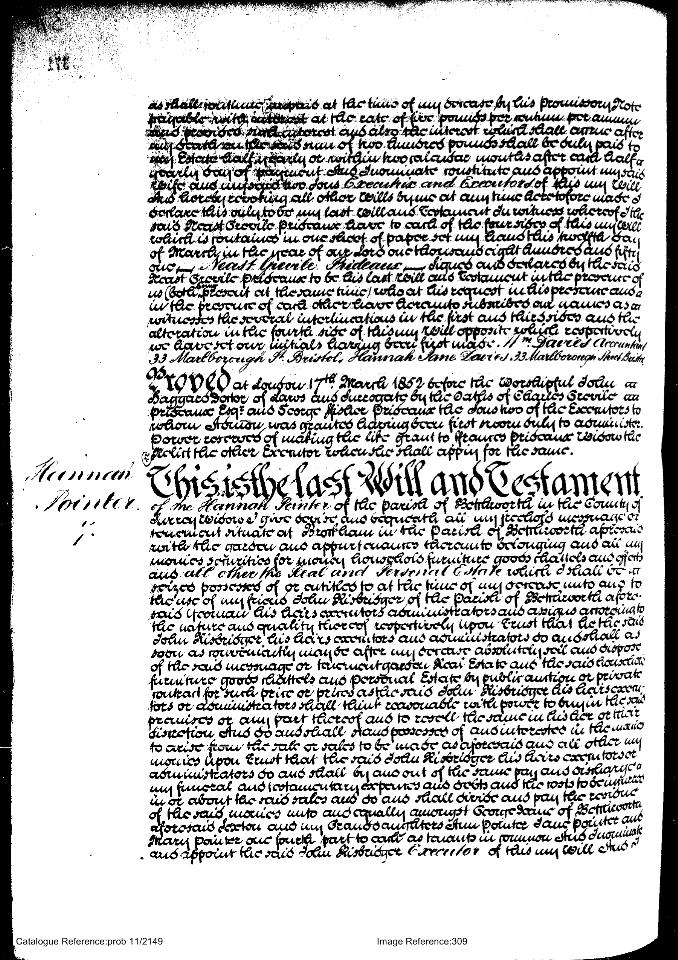 as shall continue unpaid at the time of my decease by his Promissory Note
payable with interest at the rate of five pounds per centum per annum
and provided such interest and also the interest which shall accrue after
my death on the said sum of two hundred pounds shall be duly paid to
my Estate half yearly or within two calendar months after each half
yearly day of payment And I nominate constitute and appoint my said
Wife and my said two Sons Executrix and Executors of this my Will
And hereby revoking all other Wills by me at any time heretofore made I
declare this only to be my last Will and Testament In witness whereof I the
said Neast Grevile Prideaux have to each of the four sides of this my Will
which is contained in one sheet of paper set my hand this twelfth day
of March in the year of our Lord one thousand eight hundred and fifty
one — Neast Grevile Prideaux — Signed and declared by the said
Neast Grevile Prideaux to be his last Will and Testament in the presence of
us (both present at the same time) who at his request in his presence and
in the presence of each other have hereunto subscribed our names as
witnesses the several interlineations in the first and third sides and the
alteration in the fourth side of this my Will opposite which respectively
we have set our initials having been first made. Wm. Davies Accountant
33 Marlborough St. Bristol, Hannah Jane Davies, 33 Marlborough Street Bristol
Proved at London 17th March 1852 before the Worshipful John
Daggard Doctor of Laws and Surrogate by the Oaths of Charles Grevile
Prideaux Esqr. and George Fisher Prideaux the Sons two of the Executors to
whom Admon was granted having been first sworn duly to administer.
Power reserved of making the like grant to Frances Prideaux Widow the
Relict the other Executor when she shall apply for the same.
Hannah
Pointer
7.
This is the last Will and Testament
of me Hannah Pointer of the Parish of Betchworth in the County of
Surrey Widow I give devise and bequeath all my freehold messuage or
tenement situate at Brockham in the Parish of Betchworth aforesaid
with the garden and appurtenances thereunto belonging and all my
monies securities for money household furniture goods chattels and effects
and all other the Real and Personal Estate which I shall be
seized possessed of or entitled to at the time of my decease unto and to
the use of my friend John Risbridger of the Parish of Betchworth afore-
said Yeoman his heirs executors administrators and assigns according to
the nature and quality thereof respectively upon Trust that he the said
John Risbridger his heirs executors and administrators do and shall as
soon as conveniently may be after my decease absolutely sell and dispose
of the said messuage or tenement garden Real Estate and the said household
furniture goods chattels and Personal Estate by public auction or private
contract for such price or prices as the said John Risbridger his heirs execu-
tors or administrators shall think reasonable with power to buy in the said
premises or any part thereof and to resell the same in his her or their
discretion And do and shall stand possessed of and interested in the monies
to arise from the sale or sales to be made as aforesaid and all other my
monies upon Trust that the said John Risbridger his heirs executors or
administrators do and shall by and out of the same pay and discharge
my funeral and testamentary expences and debts and the costs to be incurred
in or about the said sales and do and shall divide and pay the residue
of the said monies unto and equally amongst George Dane of Betchworth
aforesaid Sexton and my Grand daughters Ann Pointer Jane Pointer and
Mary Pointer one fourth part to each as tenants in common And I nominate
and appoint the said John Risbridger Executor of this my Will And I
Catalogue Reference:prob 11/2149
Image Reference:309